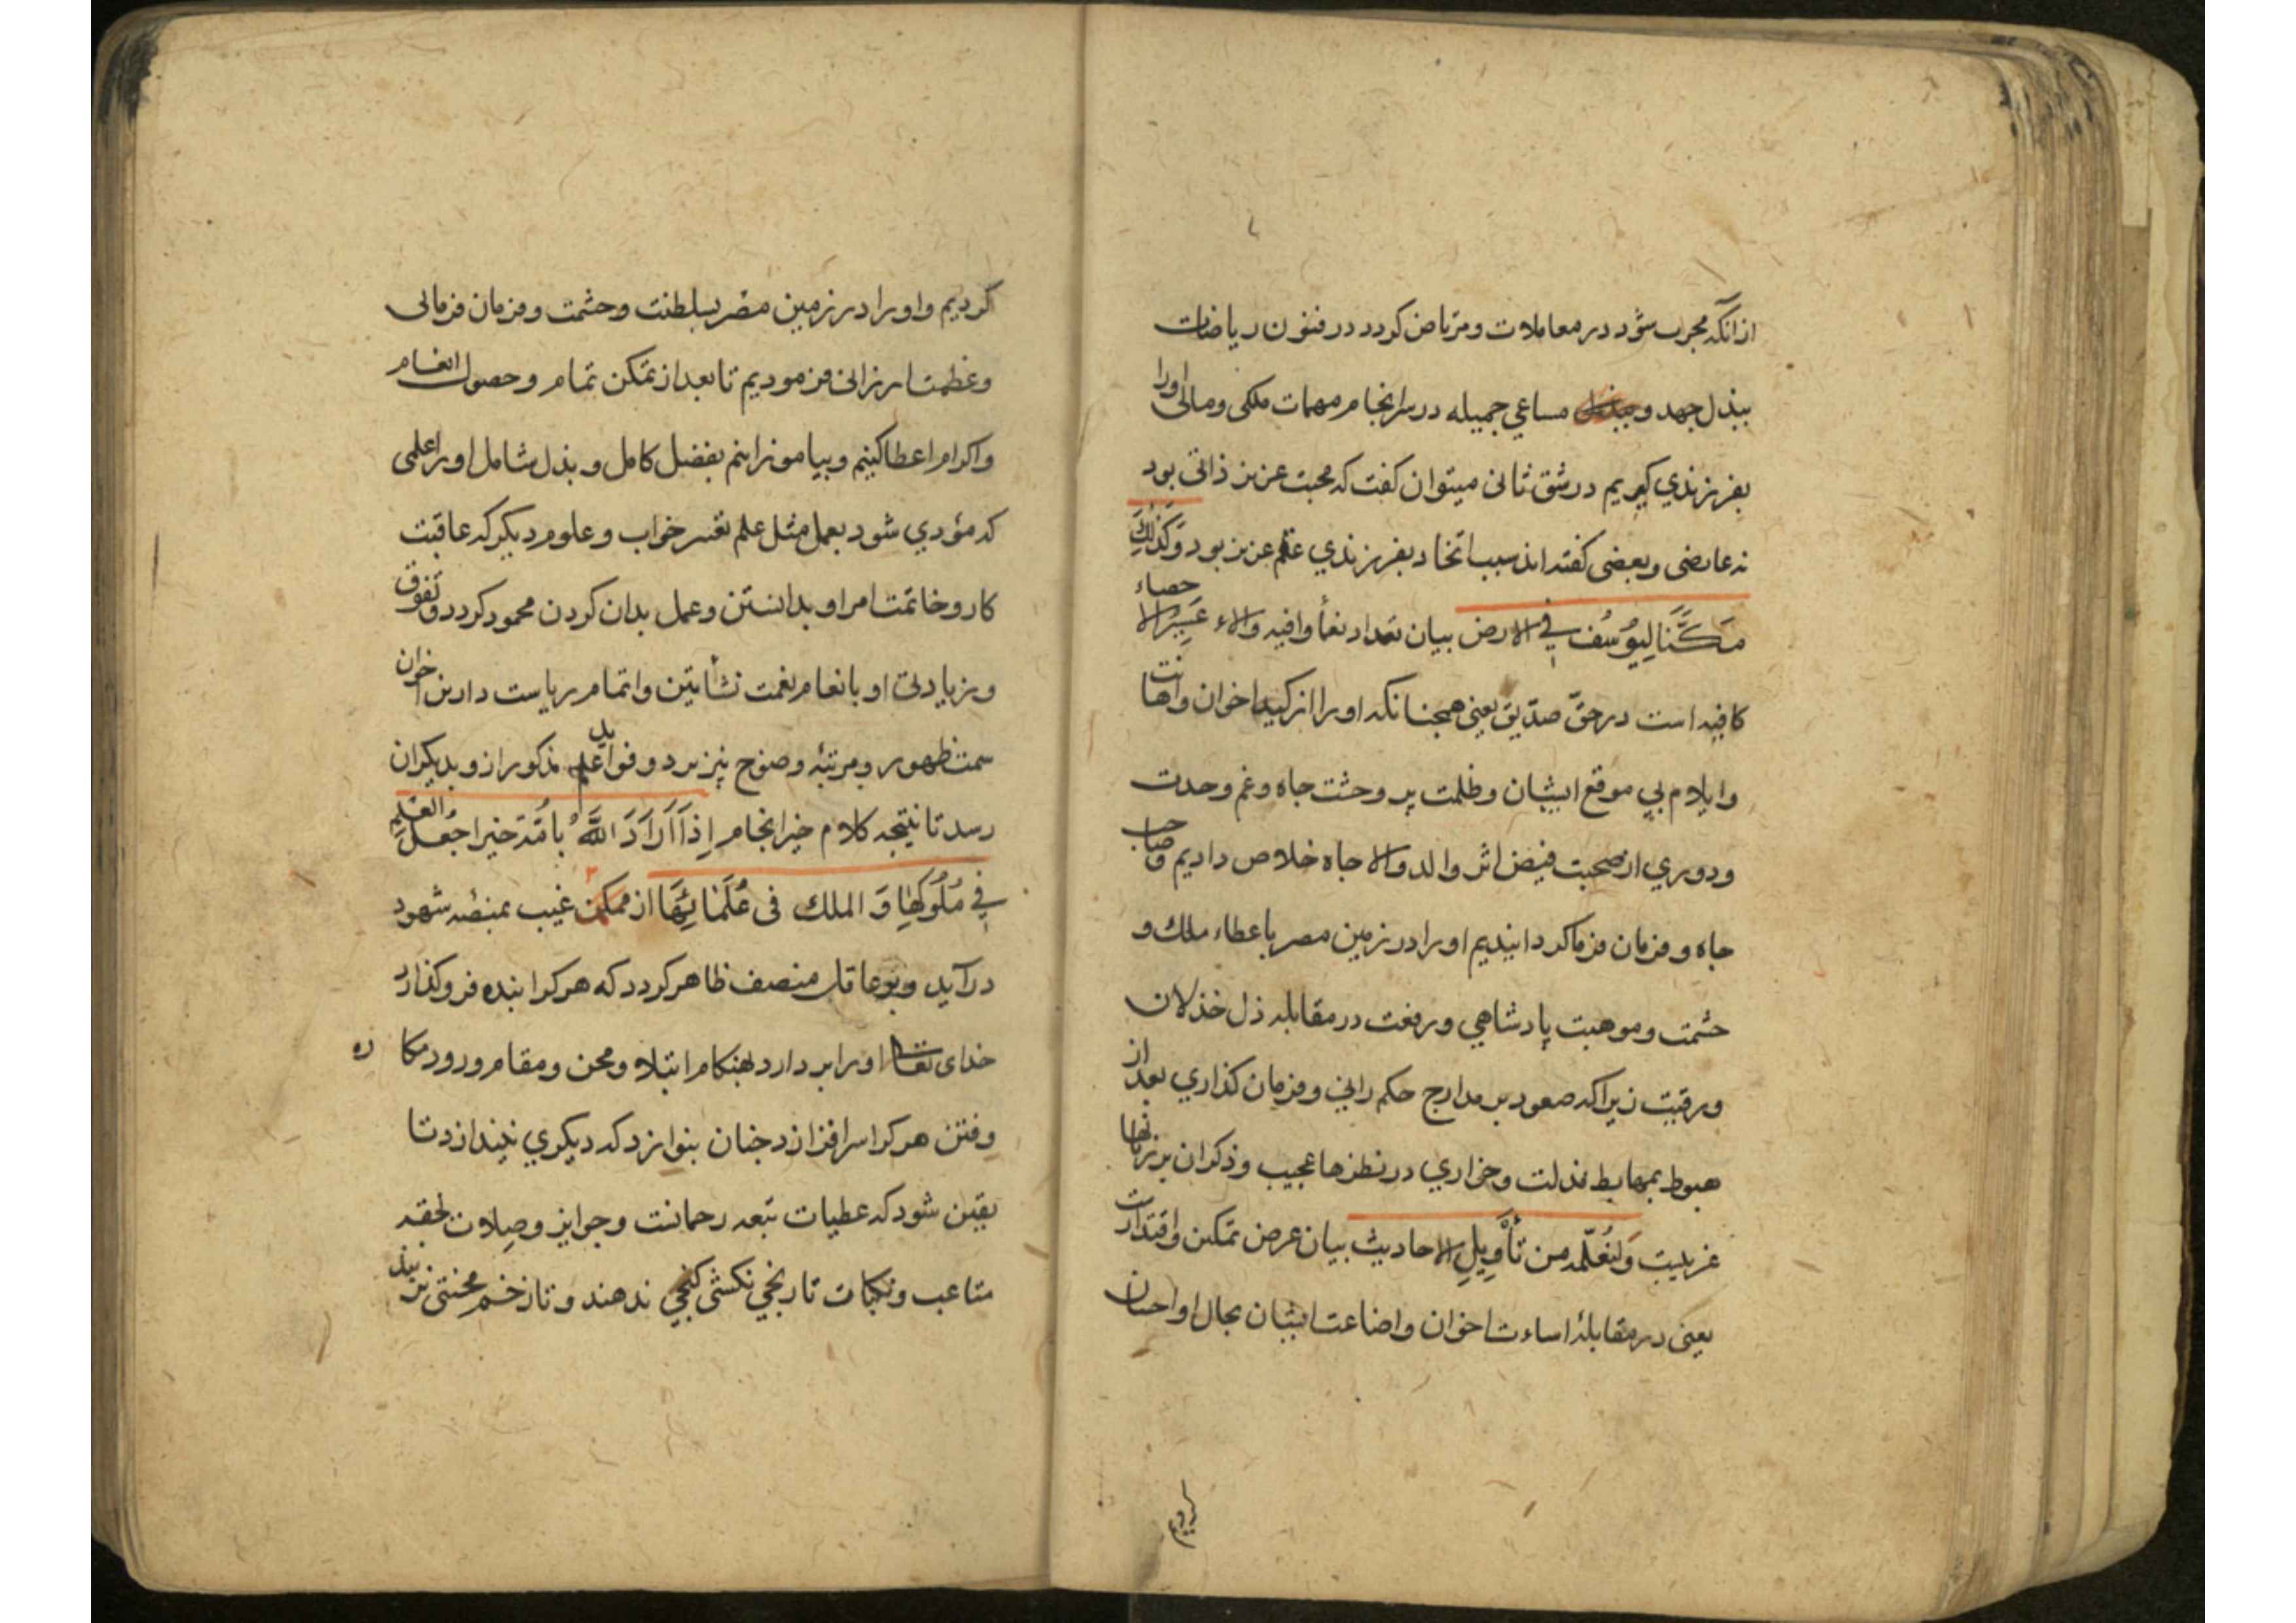 ازانکه مجرب شود در معاملات و مرتاض کردد در فنون ریاضات
ببذل جهد و مساعي جمیله در سرانجام مهمات ملکی و مالی اورا
بفرزندي کیریم در شق ثانی میتوان کفت که محبت عزیز ذاتی بود
نه عارضی و بعضی کفته اند سبب اتخاد بفرزندي عقم عزیز بود وَکَذٰلِكَ
مَکَّنَّا لِیُوسُفَ فِي الارض بیان تعداد نعماً وافیه و الاء غیر الاحصاء
کافیه است در حقّ صدّیق یعنی همچنانکه او را از کید اخوان و اهانت
وایلام بي موقع ایشان و ظلمت پر وحشت جاه و غم وحدت
و دوري از صحبت فیض اثر والد والا جاه خلاص دادیم و صاحب
جاه و فرمان فرما کردانیدیم او را در زمین مصر باعطاء ملك و
حشمت و موهبت پادشاهي و رفعت در مقابله ذل خذلان
و رقیت زیرا که صعود بر مدارج حکم راني و فرمان کذاري بعد از
هبوط بمهابط مذلت و خواري در نظرها عجیب و ذکر ان بر زبانها
غریبت وَلِنُعَلِّمَه من تَأْوِیلِ الاحادیث بیان عرض تمکین و اقتدارت
یعنی در مقابلهٔ اساءت اخوان و اضاعت ایشان بحال او احسان
کردیم
کردیم و او را در زمین مصر بسلطنت و حشمت و فرمان فرمائی
و عظمت ارزانی فرمودیم تا بعد از تمکن تمام و حصول انعام
و اکرام اعطا کنیم و بیاموزانیم بفضل کامل و بذل شامل او را علمی
که مؤدي شود بعمل مثل علم تعبیر خواب و علوم دیکر که عاقبت
کار و خاتمت امر او بدانستن و عمل بدان کردن محمود کردد و تفوق
و زیادتی او بانعام نعمت نشأتین و اتمام ریاست دارین اخوان
سمت ظهور و مرتبه وضوح پذیرد و فواید علم مذکور ازو بدیکران
رسد تا نتیجه کلام خیر انجام اِذَا اَرَادَ اللّٰهُ بِاُمَّة خیرا جَعَلَ العلم
فِي مُلُوکِهَا وَ الملك فی عُلَمَائِهَا از ممکن غیب بمنصه شهود
در آید و بر عاقل منصف ظاهر کردد که هر کرا بنده فرو کذارد
خدای تعالی او را بر دارد بهنکام ابتلاء و محن و مقام ورود مکاره
و فتن هر کرا سرافرازد چنان بنوازد که دیکري نیندازد تا
یقین شود که عطیات تبعه رحمانست و جوایز و صلات لحقه
متاعب و نکبات تا رنجي نکشی کنجي ندهند و تا زخم محنتی نر